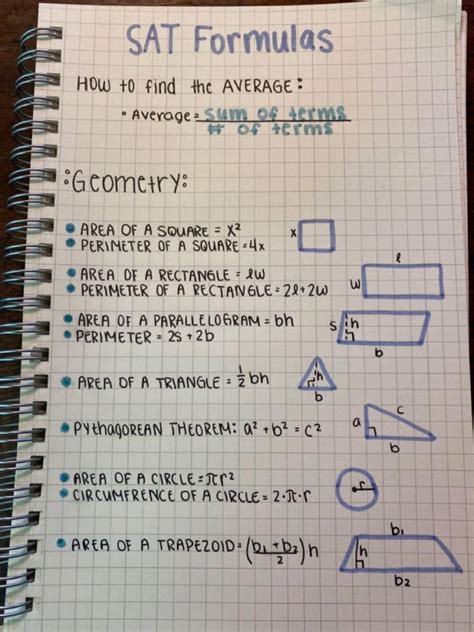 SAT Formulas
HOW to find the AVERAGE:
• Average = sum of terms
# of terms
:Geometry:
• AREA OF A SQUARE = x²
x
• PERIMETER OF A SQUARE = 4x
l
• AREA OF A RECTANGLE = lw
w
• PERIMETER OF A RECTANGLE = 2l + 2w
• AREA OF A PARALLELOGRAM = bh
s h
• PERIMETER = 2s + 2b
b
• AREA OF A TRIANGLE = 1/2 bh
h
b
• PYthagOREAN THEOREM: a² + b² = c²
a c
b
• AREA OF A CIRCLE = πr²
r
• CIRCUMFRENCE OF A CIRCLE = 2·π·r
b₁
• AREA OF A TRAPEZOID = (b₁ + b₂ / 2) h
h
b₂